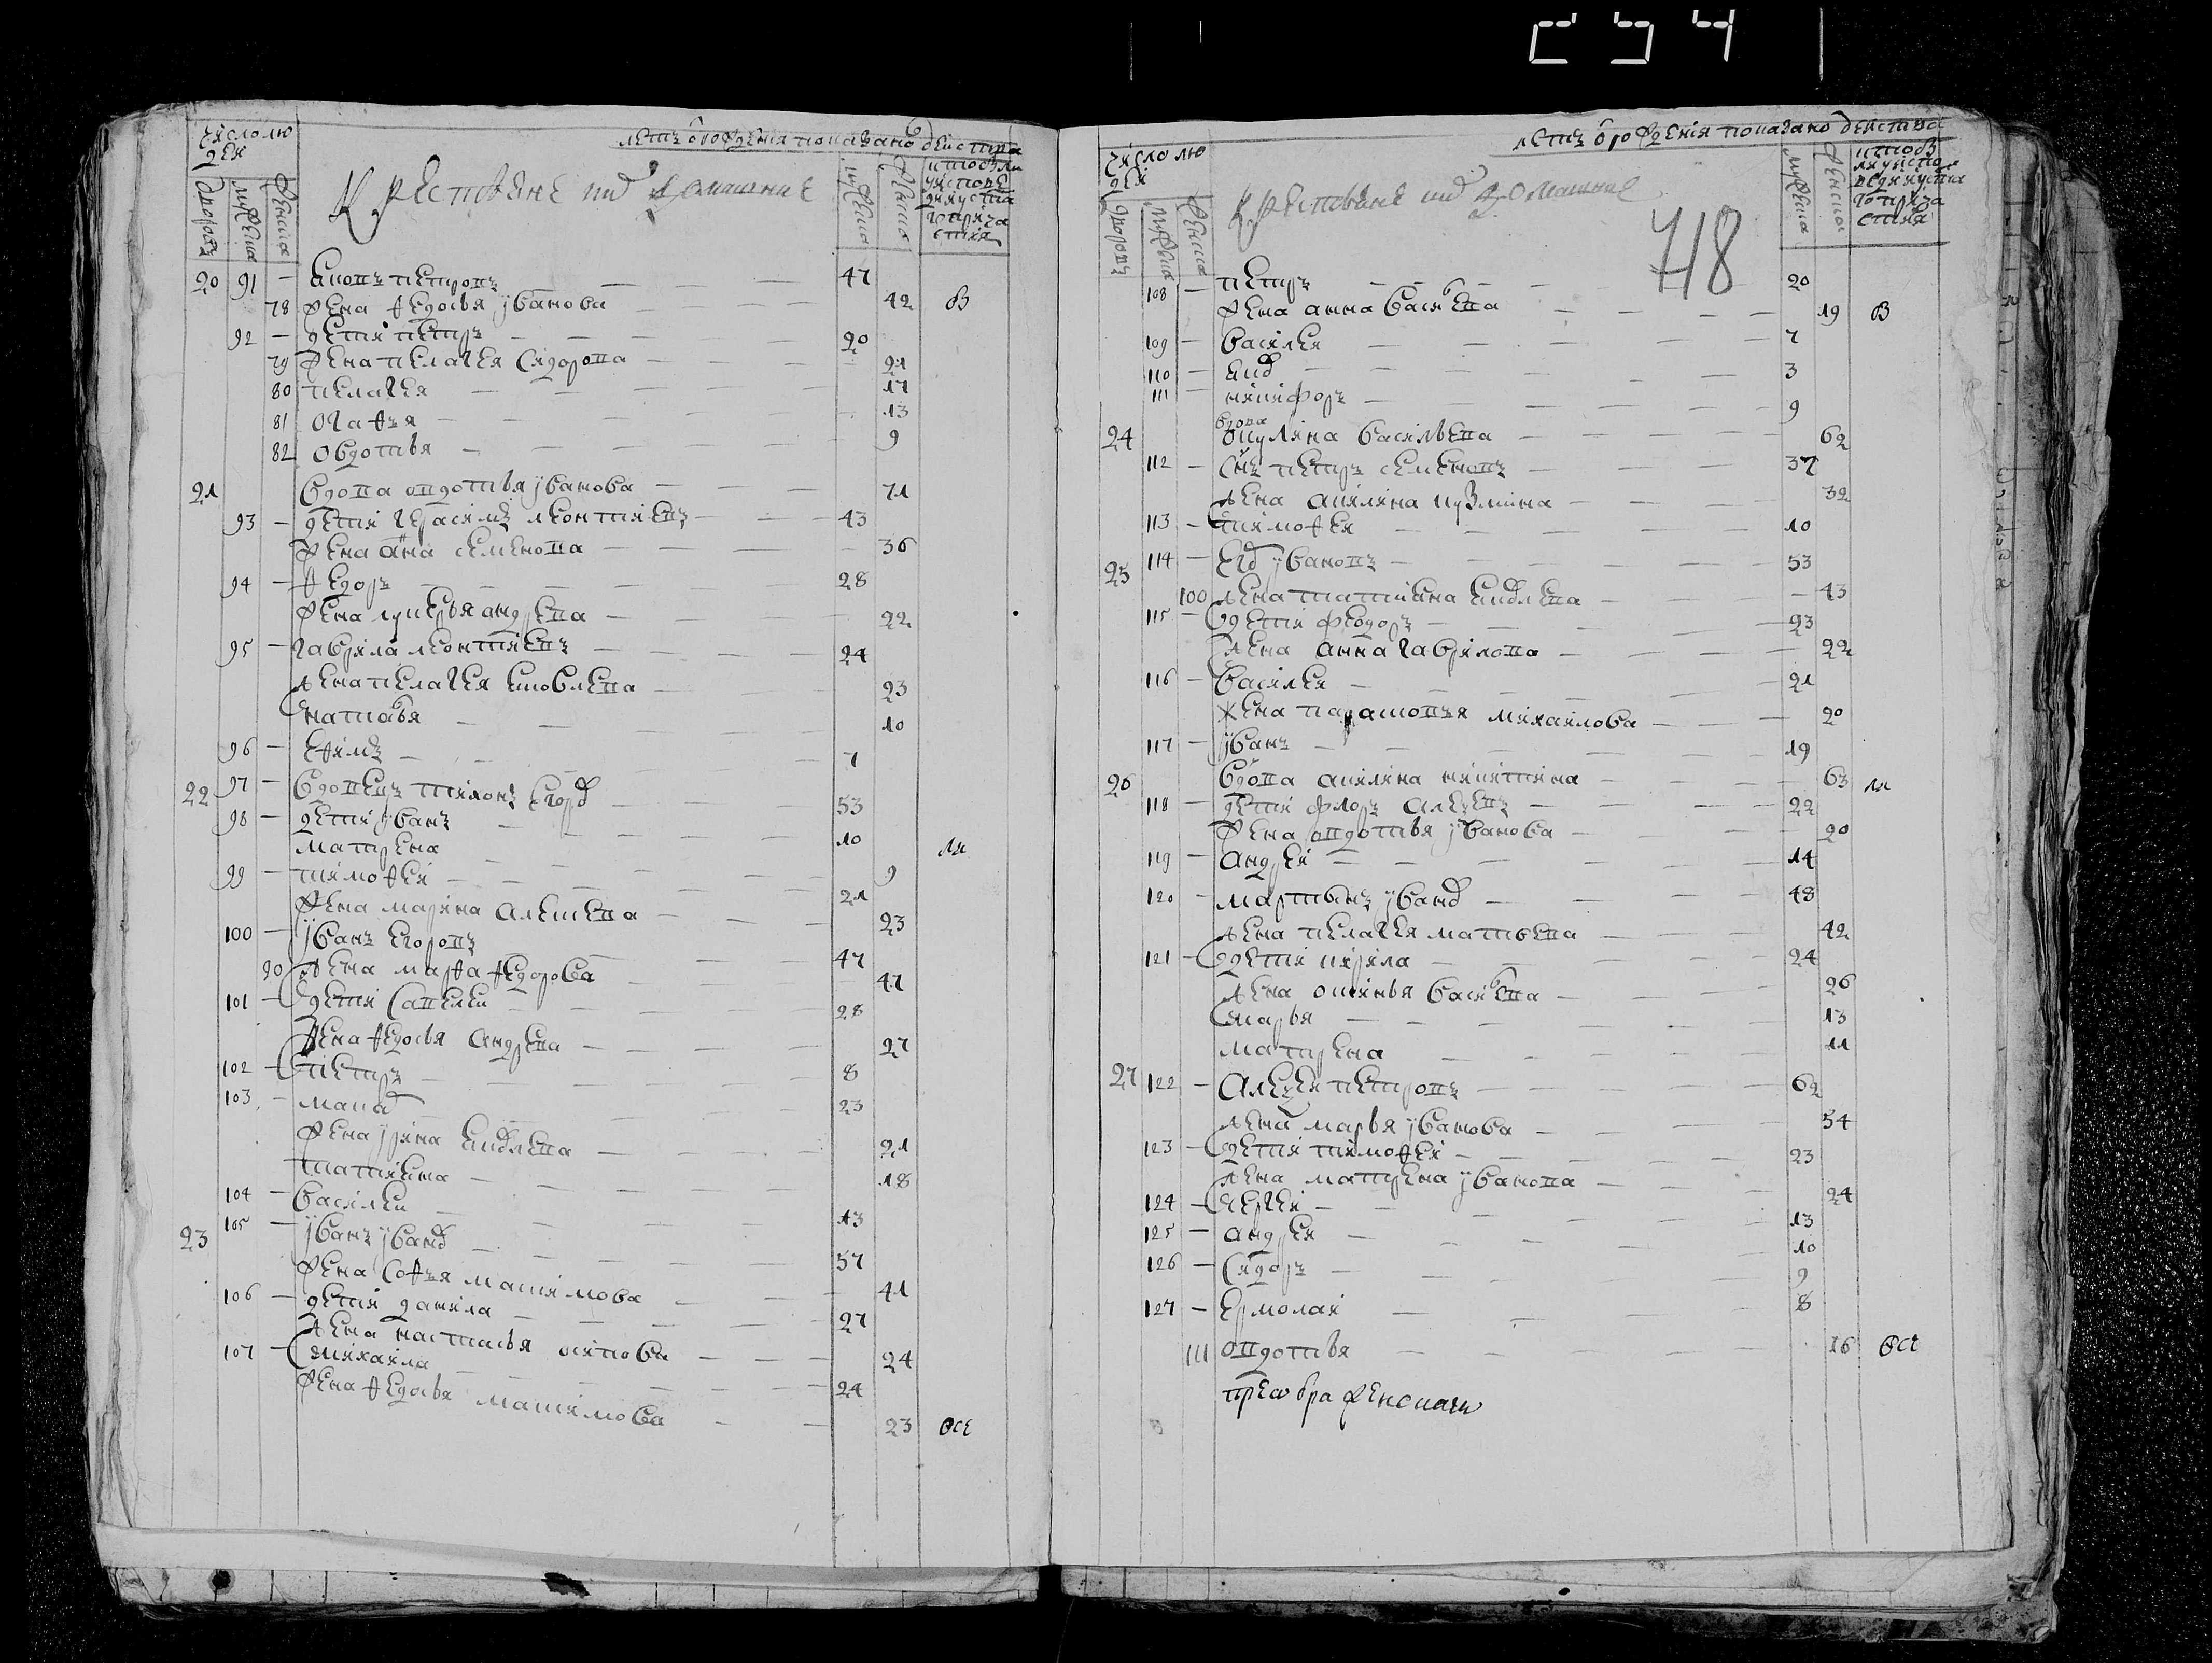 254
число лю
дей
дворовъ
мужеска
женска
летъ от рождения показано действа
Крестьяне и их домашние
мужеска
женска
и то был ли
у испове
ди и у свя
того прича
стия
20 91 — Яковъ петровъ — 47
78 жена федосья иванова — 42 в
92 — дети петръ — 20
79 жена пелагея сидорова — 21
80 пелагея — 17
81 огафья — 13
82 овдотья — 9
21 вдова овдотья иванова — 71
93 — дети герасимъ леонтиевъ — 43
жена анна семенова — 36
94 — федоръ — 28
жена лукерья андреева — 22
95 — гаврила леонтиевъ — 24
жена пелагея яковлева — 23
наталья — 10
96 — ефимъ — 7
22 97 — вдовецъ тихонъ егоръ — 53
98 — дети иванъ — 10
матрена — 9 ли
99 — тимофеи — 21
жена марина алексеева — 23
100 — иванъ егоровъ — 47
90 жена марфа федорова — 47
101 — дети савелеи — 28
жена федосья андреева — 27
102 — петръ — 8
103 — макар — 23
жена ирина яковлева — 21
татияна — 18
104 — василеи — 13
23 105 — иванъ иванов — 57
жена софья максимова — 41
106 — дети данила — 27
жена настасья осипова — 24
107 — михаила — 24
жена федосья максимова — 23 все
число лю
дей
дворовъ
мужеска
женска
летъ от рождения показано действа
Крестьяне и их домашние
718
мужеска
женска
и то был
ли у испо
веди и у свя
того прича
стия
108 — петръ — 20
жена анна васильева — 19 в
109 — василеи — 7
110 — яков — 3
111 — никифоръ — 9
24 вдова
окулина васильева — 62
112 — сынъ петръ семеновъ — 37
жена акилина кузмина — 32
113 — тимофеи — 10
25 114 — егор ивановъ — 53
100 жена татияна яковлева — 43
115 — дети феодоръ — 23
жена анна гаврилова — 22
116 — василеи — 21
жена парасковья михаилова — 20
117 — иванъ — 19
26 вдова акилина никитина — 63 ли
118 — дети флоръ алексеевъ — 22
жена овдотья иванова — 20
119 — андреи — 14
120 — мартынъ иванов — 48
жена пелагея матвеева — 42
121 — дети кирила — 24
жена оксинья васильева — 26
марья — 13
матрена — 11
27 122 — Алексеи петровъ — 62
жена марья иванова — 54
123 — дети тимофеи — 23
жена матрена иванова — 24
124 — сергеи — 13
125 — андреи — 10
126 — сидоръ — 9
127 — ермолаи — 8
111 овдотья — 16 все